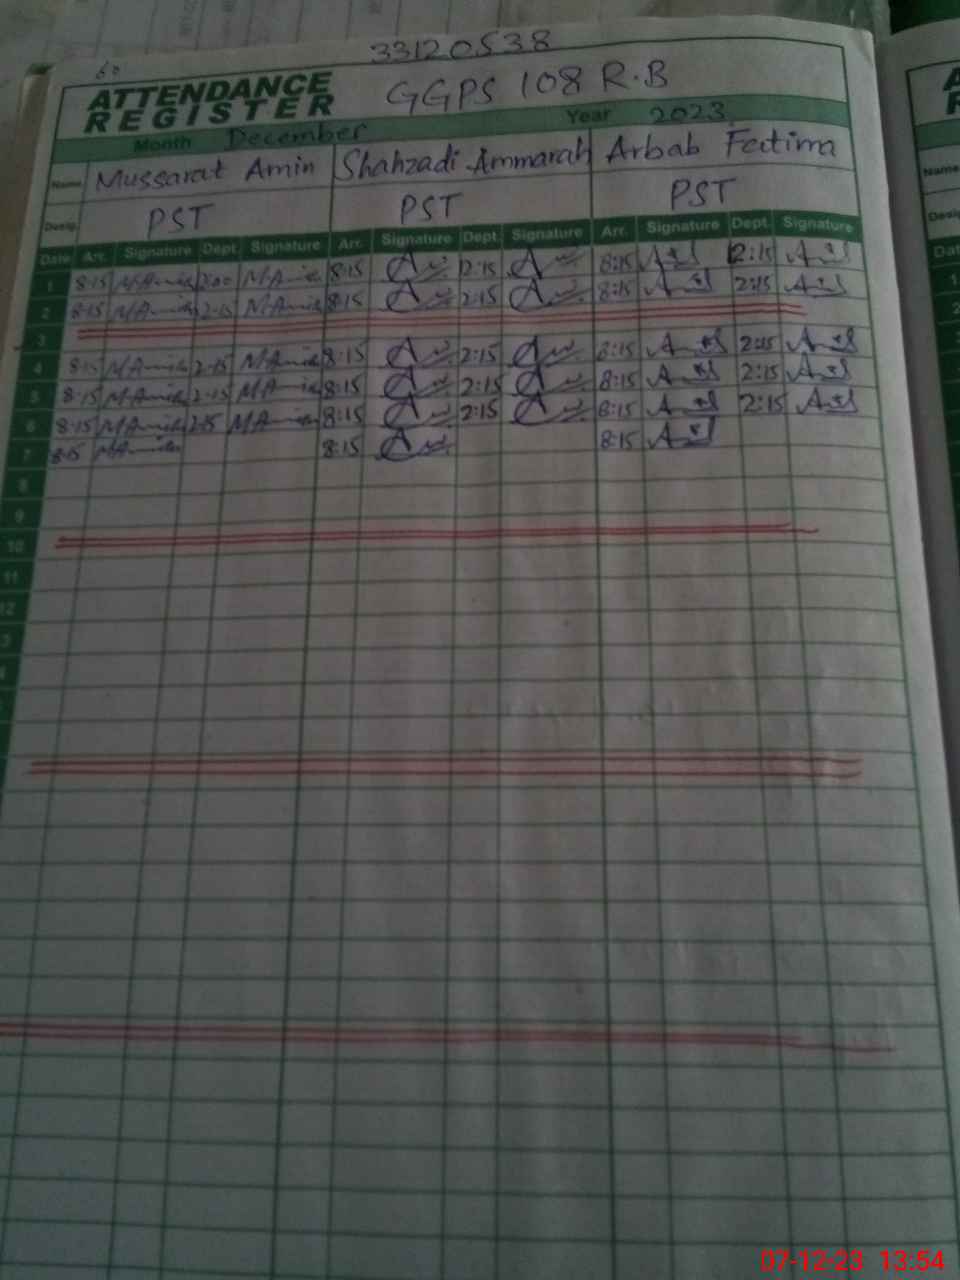 33120538
60
ATTENDANCE REGISTER GGPS 108 R.B
Month December Year 2023
Name Mussarat Amin Shahzadi Ammarah Arbab Fatima
Desig. PST PST PST
Date Arr. Signature Dept. Signature Arr. Signature Dept. Signature Arr. Signature Dept. Signature
1 8:15 MAmin 8:15 12:15 8:15 12:15
2 8:15 MAmin 2:15 MAmin 8:15 2:15 8:15 2:15
3
4 8:15 MAmin 2:15 MAmin 8:15 2:15 8:15 2:15
5 8:15 MAmin 2:15 MAmin 8:15 2:15 8:15 2:15
6 8:15 MAmin 2:15 MAmin 8:15 2:15 8:15 2:15
7 8:15 MAmin 8:15 8:15
8
9
10
11
12
Name
Desig
Dat
07-12-23 13:54